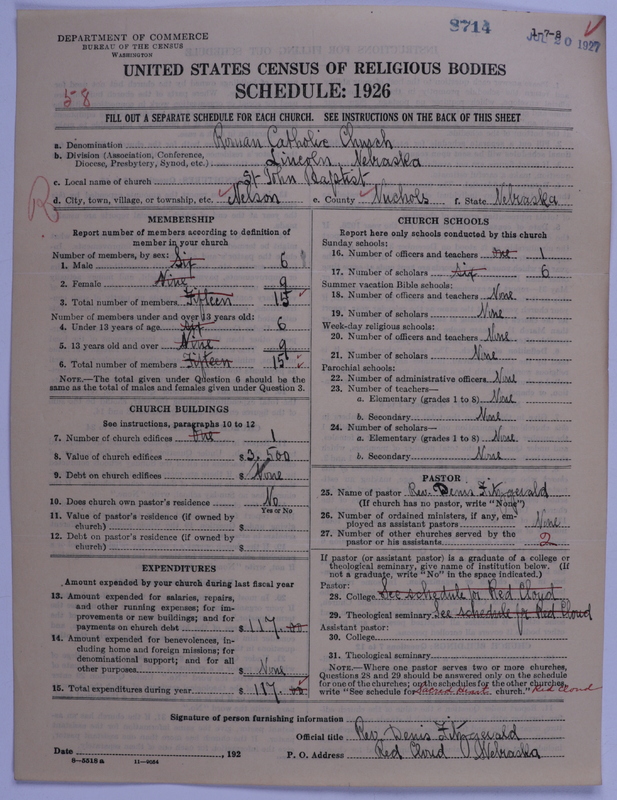 DEPARTMENT OF COMMERCE
BUREAU OF THE CENSUS
WASHINGTON
2714
1-7-8
JUL 20 1927
UNITED STATES CENSUS OF RELIGIOUS BODIES
SCHEDULE: 1926
58
FILL OUT A SEPARATE SCHEDULE FOR EACH CHURCH. SEE INSTRUCTIONS ON THE BACK OF THIS SHEET
a. Denomination Roman Catholic Church
b. Division (Association, Conference, Diocese, Presbytery, Synod, etc.) Lincoln, Nebraska
c. Local name of church St John Baptist
R
d. City, town, village, or township, etc. Nelson e. County Nuchols f. State Nebraska
MEMBERSHIP
Report number of members according to definition of
member in your church
Number of members, by sex:
1. Male Six 6
2. Female Nine 9
3. Total number of members Fifteen 15
Number of members under and over 13 years old:
4. Under 13 years of age Six 6
5. 13 years old and over Nine 9
6. Total number of members Fifteen 15
NOTE.—The total given under Question 6 should be the
same as the total of males and females given under Question 3.
CHURCH BUILDINGS
See instructions, paragraphs 10 to 12
7. Number of church edifices One 1
8. Value of church edifices $ 3,500
9. Debt on church edifices $ None
10. Does church own pastor's residence No
Yes or No
11. Value of pastor's residence (if owned by
church) $
12. Debt on pastor's residence (if owned by
church) $
EXPENDITURES
Amount expended by your church during last fiscal year
13. Amount expended for salaries, repairs,
and other running expenses; for im-
provements or new buildings; and for
payments on church debt $ 117.00
14. Amount expended for benevolences, in-
cluding home and foreign missions; for
denominational support; and for all
other purposes $ None
15. Total expenditures during year $ 117.00
CHURCH SCHOOLS
Report here only schools conducted by this church
Sunday schools:
16. Number of officers and teachers One 1
17. Number of scholars Six 6
Summer vacation Bible schools:
18. Number of officers and teachers None
19. Number of scholars None
Week-day religious schools:
20. Number of officers and teachers None
21. Number of scholars None
Parochial schools:
22. Number of administrative officers None
23. Number of teachers—
a. Elementary (grades 1 to 8) None
b. Secondary None
24. Number of scholars—
a. Elementary (grades 1 to 8) None
b. Secondary None
PASTOR
25. Name of pastor Rev. Denis Fitzgerald
(If church has no pastor, write "None")
26. Number of ordained ministers, if any, em-
ployed as assistant pastors None
27. Number of other churches served by the
pastor or his assistants 2
If pastor (or assistant pastor) is a graduate of a college or
theological seminary, give name of institution below. (If
not a graduate, write "No" in the space indicated.)
Pastor:
28. College See schedule for Red Cloud
29. Theological seminary See schedule for Red Cloud
Assistant pastor:
30. College
31. Theological seminary
NOTE.—Where one pastor serves two or more churches,
Questions 28 and 29 should be answered only on the schedule
for one of the churches; on the schedules for the other churches,
write "See schedule for Sacred Heart church." Red Cloud
Signature of person furnishing information
Official title Rev. Denis Fitzgerald
Date , 192
P. O. Address Red Cloud Nebraska
8—5518 a 11—9064